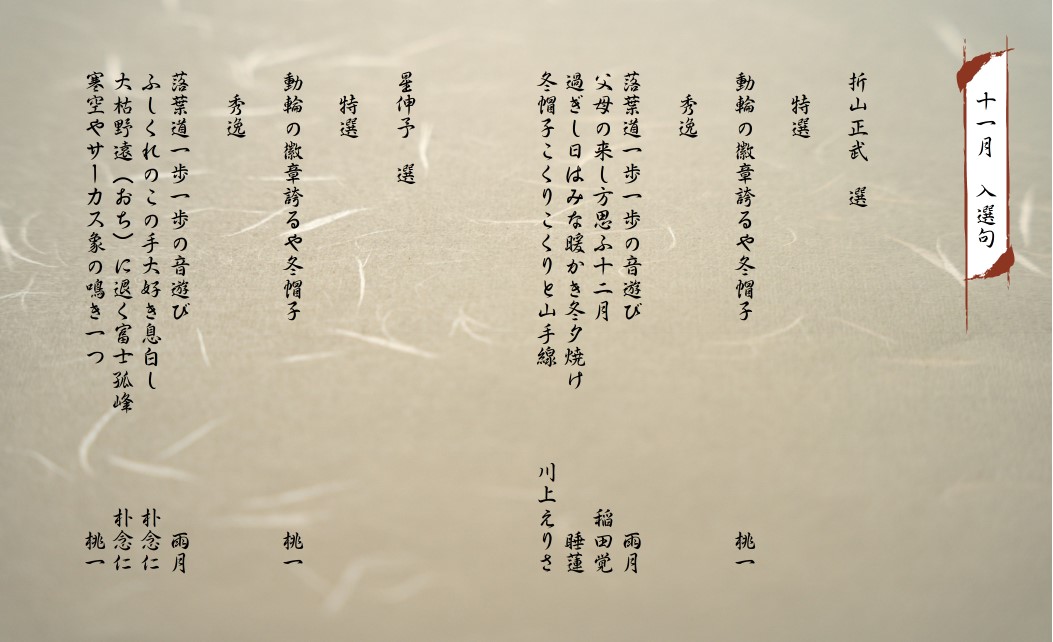 十一月　入選句
折山正武　選
特選
動輪の徽章誇るや冬帽子　桃一
秀逸
落葉道一歩一歩の音遊び　雨月
父母の来し方思ふ十二月　稲田覚
過ぎし日はみな暖かき冬夕焼け　睡蓮
冬帽子こくりこくりと山手線　川上えりさ
星伸予　選
特選
動輪の徽章誇るや冬帽子　桃一
秀逸
落葉道一歩一歩の音遊び　雨月
ふしくれのこの手大好き息白し　朴念仁
大枯野遠（おち）に退く富士孤峰　朴念仁
寒空やサーカス象の鳴き一つ　桃一